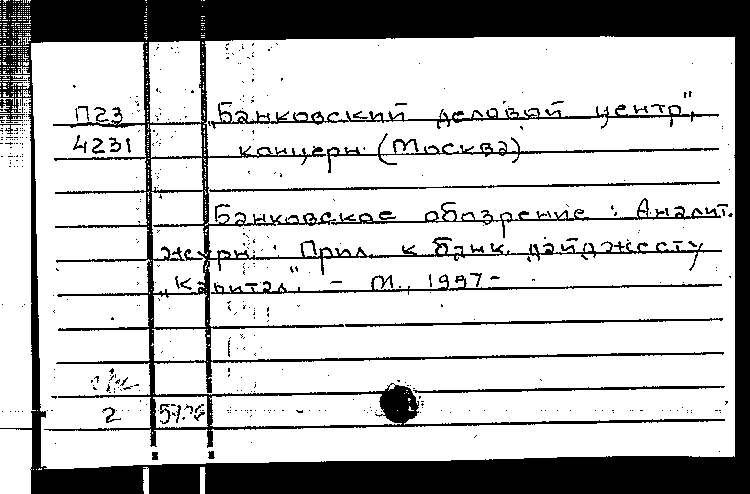 П23 „Банковский деловой центр",
4231 концерн (Москва)
Банковское обозрение : Аналит.
журн. : Прил. к банк. дайджесту
„Капитал". – М., 1997–
2